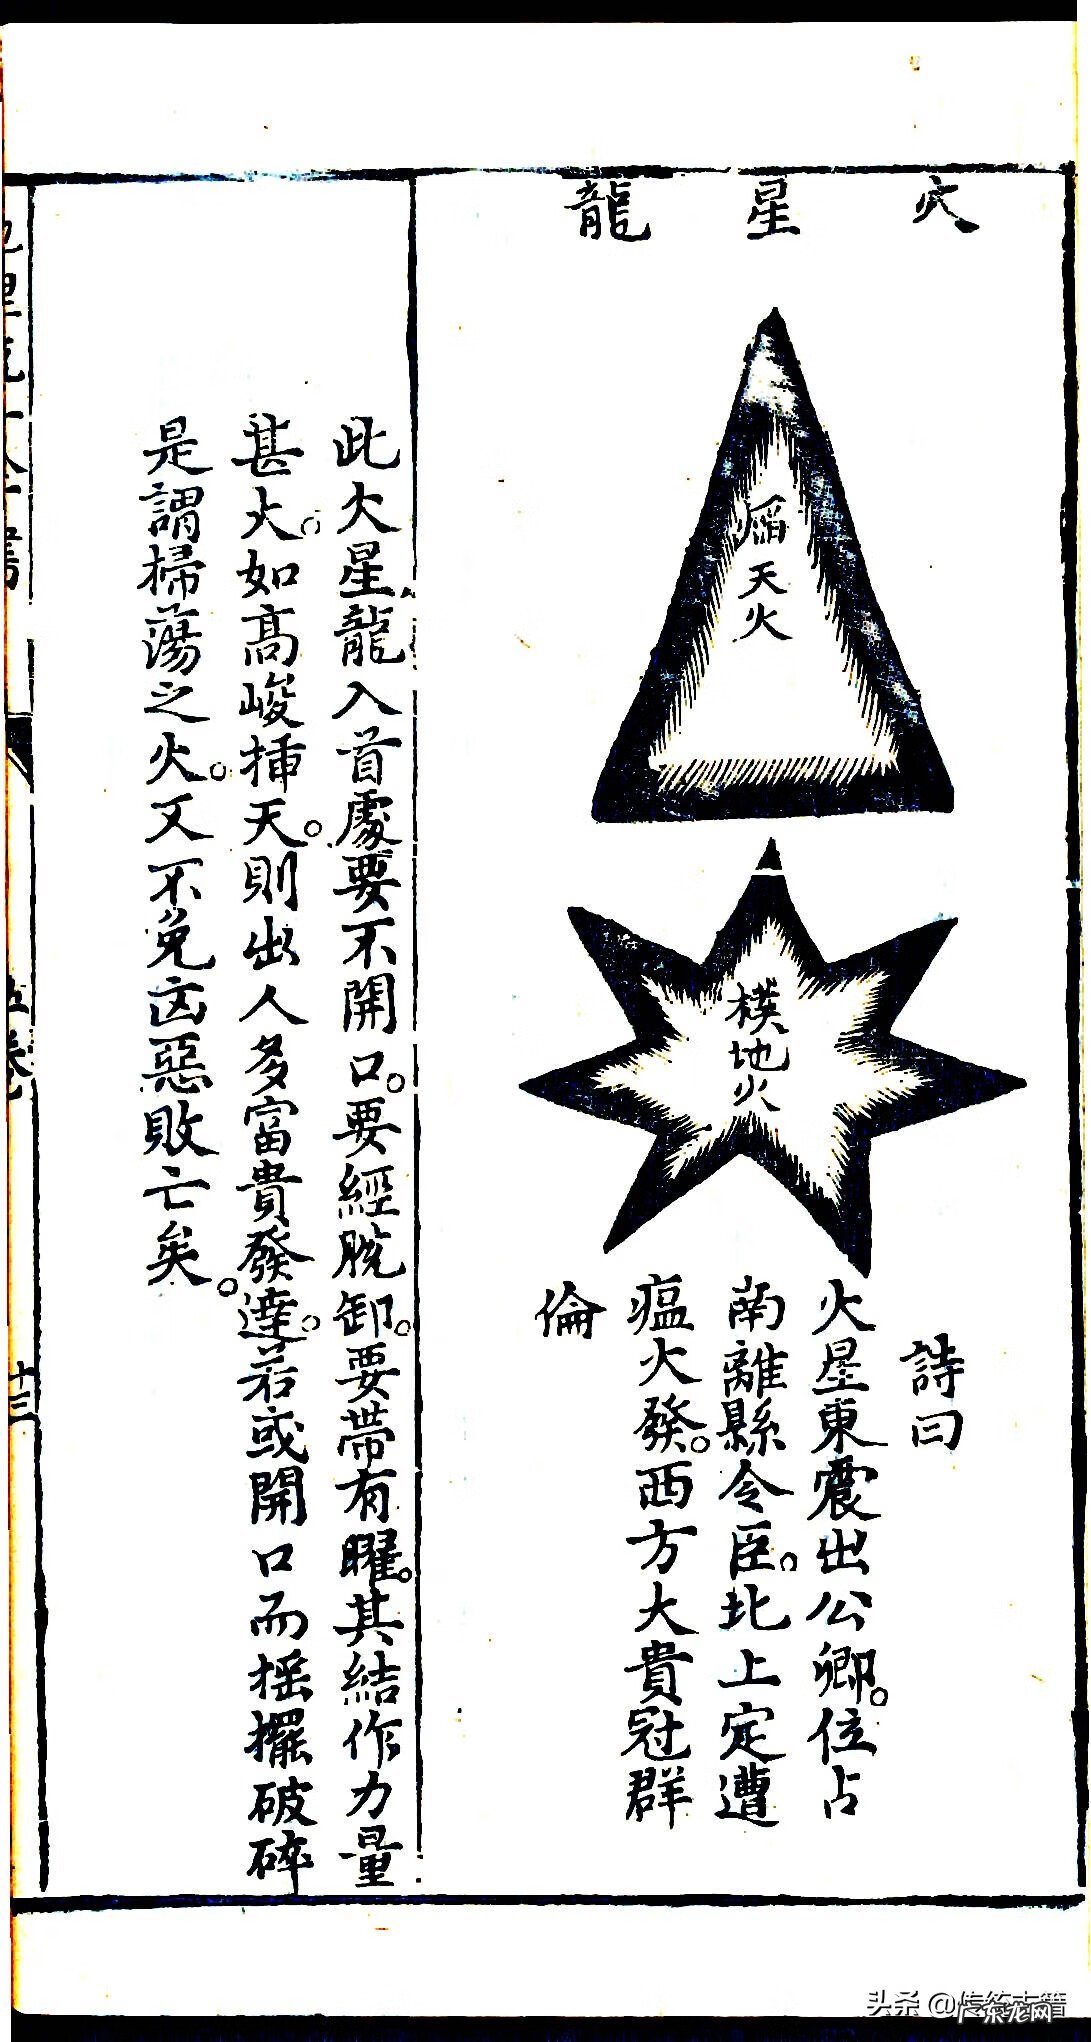 火星龍
焰天火
地火
詩曰
火星東震出公卿。位占
南離縣令臣。北上定遭
瘟火發。西方大貴冠群
倫
此火星龍入首處要不開口。要經脫卸。要帶有曜。其結作力量
甚大。如高峻揷天。則出人多富貴發達。若或開口而搖擺破碎
是謂掃蕩之火。又不免凶惡敗亡矣。
卷
十三
头条 @传统古籍